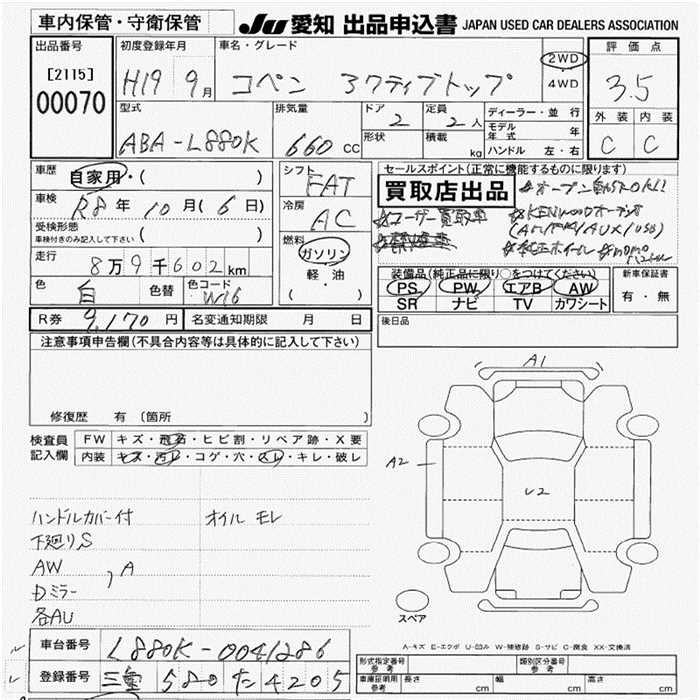 車内保管・守衛保管
JU 愛知 出品申込書 JAPAN USED CAR DEALERS ASSOCIATION
出品番号
[2115]
00070
初度登録年月
H19 9月
車名・グレード
コペン アクティブトップ
2WD
4WD
評価点
3.5
外装 内装
C C
型式
ABA-L880K
排気量
660 cc
ドア
2
形状
定員
2人
積載
kg
ディーラー・並行
モデル年式 年
ハンドル 左・右
車歴
自家用・( )
車検
R8年 10月(6日)
受検形態
車検付きのみ記入して下さい ( )
走行
8万9千602km
色
白
色替
色コード
W16
シフト
FAT
冷房
AC
燃料
ガソリン
軽・油
( )
セールスポイント(正常に機能するものに限ります)
買取店出品
☆オープン動作OK!!
☆ユーザー買取車
☆KENWOODオーディオ
(AM/FM/AUX/USB)
☆禁煙車
☆純正ホイール ☆MOMO
ハンドル
装備品(純正品に限り○をつけてください)
PS PW エアB AW
SR ナビ TV カワシート
新車保証書
有・無
R券 9,170円
名変通知期限 月 日
後日品
注意事項申告欄(不具合内容等は具体的に記入して下さい)
修復歴 有(箇所 )
検査員
記入欄
FW キズ・飛石・ヒビ割・リペア跡・X要
内装 キズ・汚レ・コゲ・穴・スレ・キレ・破レ
ハンドルカバー付 オイルモレ
下廻りS
AW
Dミラー , A
各AU
A1
A2
U2
スペア
A-キズ E-エクボ U-凹み W-補修跡 S-サビ C-腐食 XX-交換済
車台番号 L880K-0041286
登録番号 三重 580 た 4205
形式指定番号
参考
類別区分番号
参考
車庫証明用
参考
長さ cm
幅 cm
高さ cm